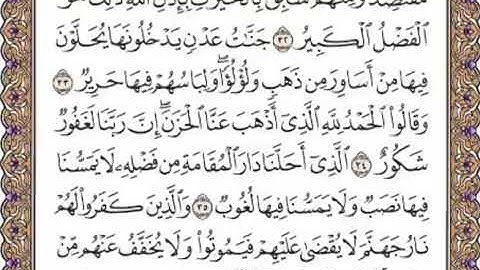 مُّقْتَصِدٌ وَمِنْهُمْ سَابِقٌۢ بِٱلْخَيْرَٰتِ بِإِذْنِ ٱللَّهِ ذَٰلِكَ هُوَ
ٱلْفَضْلُ ٱلْكَبِيرُ ٣٢ جَنَّٰتُ عَدْنٍ يَدْخُلُونَهَا يُحَلَّوْنَ
فِيهَا مِنْ أَسَاوِرَ مِن ذَهَبٍ وَلُؤْلُؤًا ۖ وَلِبَاسُهُمْ فِيهَا حَرِيرٌ ٣٣
وَقَالُوا۟ ٱلْحَمْدُ لِلَّهِ ٱلَّذِىٓ أَذْهَبَ عَنَّا ٱلْحَزَنَ ۖ إِنَّ رَبَّنَا لَغَفُورٌ
شَكُورٌ ٣٤ ٱلَّذِىٓ أَحَلَّنَا دَارَ ٱلْمُقَامَةِ مِن فَضْلِهِۦ لَا يَمَسُّنَا
فِيهَا نَصَبٌ وَلَا يَمَسُّنَا فِيهَا لُغُوبٌ ٣٥ وَٱلَّذِينَ كَفَرُوا۟ لَهُمْ
نَارُ جَهَنَّمَ لَا يُقْضَىٰ عَلَيْهِمْ فَيَمُوتُوا۟ وَلَا يُخَفَّفُ عَنْهُم مِّنْ